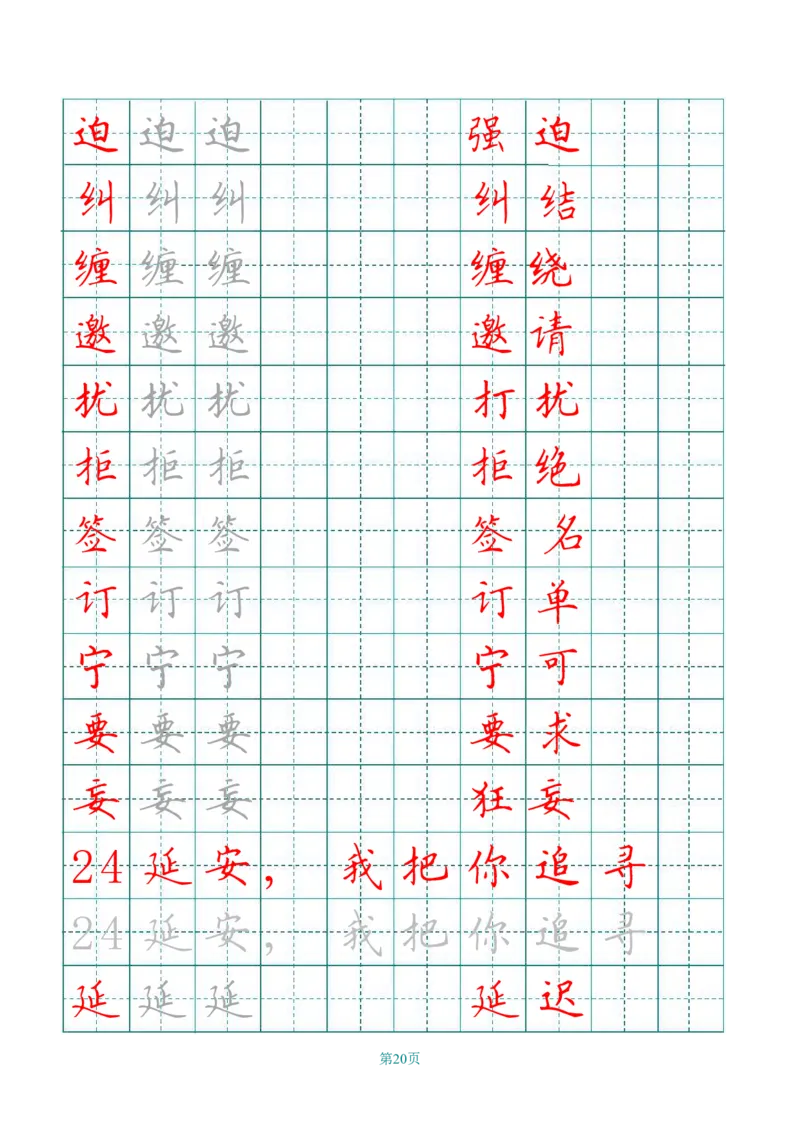 迫 迫 迫 强 迫
纠 纠 纠 纠 结
缠 缠 缠 缠 绕
邀 邀 邀 邀 请
扰 扰 扰 打 扰
拒 拒 拒 拒 绝
签 签 签 签 名
订 订 订 订 单
宁 宁 宁 宁 可
要 要 要 要 求
妄 妄 妄 狂 妄
24 延 安， 我 把 你 追 寻
24 延 安， 我 把 你 追 寻
延 延 延 延 迟
第20页